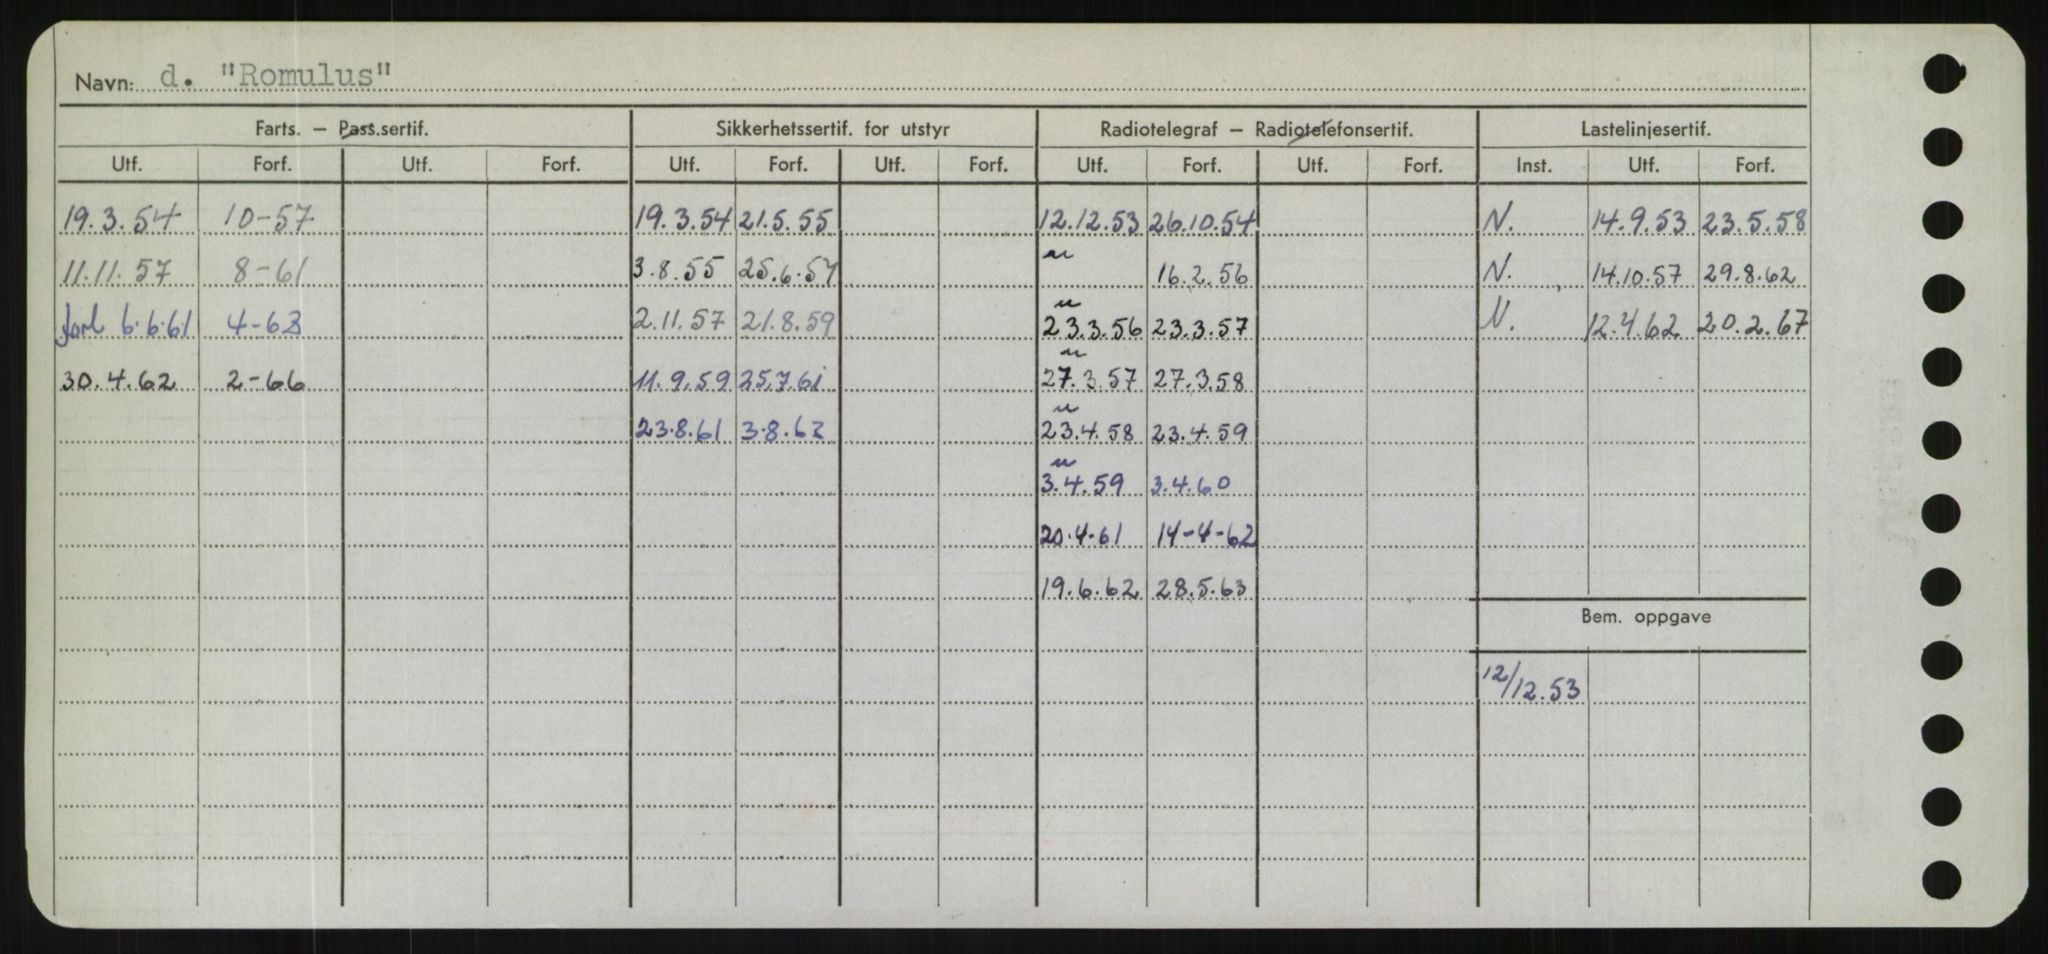 Navn: d. "Romulus"
Farts. – Pass.sertif. Sikkerhetssertif. for utstyr Radiotelegraf – Radiotelefonsertif. Lastelinjesertif.
Utf. Forf. Utf. Forf. Utf. Forf. Utf. Forf. Utf. Forf. Utf. Forf. Inst. Utf. Forf.
19.3.54 10-57 19.3.54 21.5.55 12.12.53 26.10.54 N. 14.9.53 23.5.58
11.11.57 8-61 3.8.55 25.6.57 16.2.56 N. 14.10.57 29.8.62
forl 6.6.61 4-62 2.11.57 21.8.59 23.3.56 23.3.57 N. 12.4.62 20.2.67
30.4.62 2-66 11.9.59 25.7.61 27.3.57 27.3.58
23.8.61 3.8.63 23.4.58 23.4.59
3.4.59 3.4.60
20.4-61 14-4-62
19.6.62 28.5.63
Bem. oppgave
12/12.53